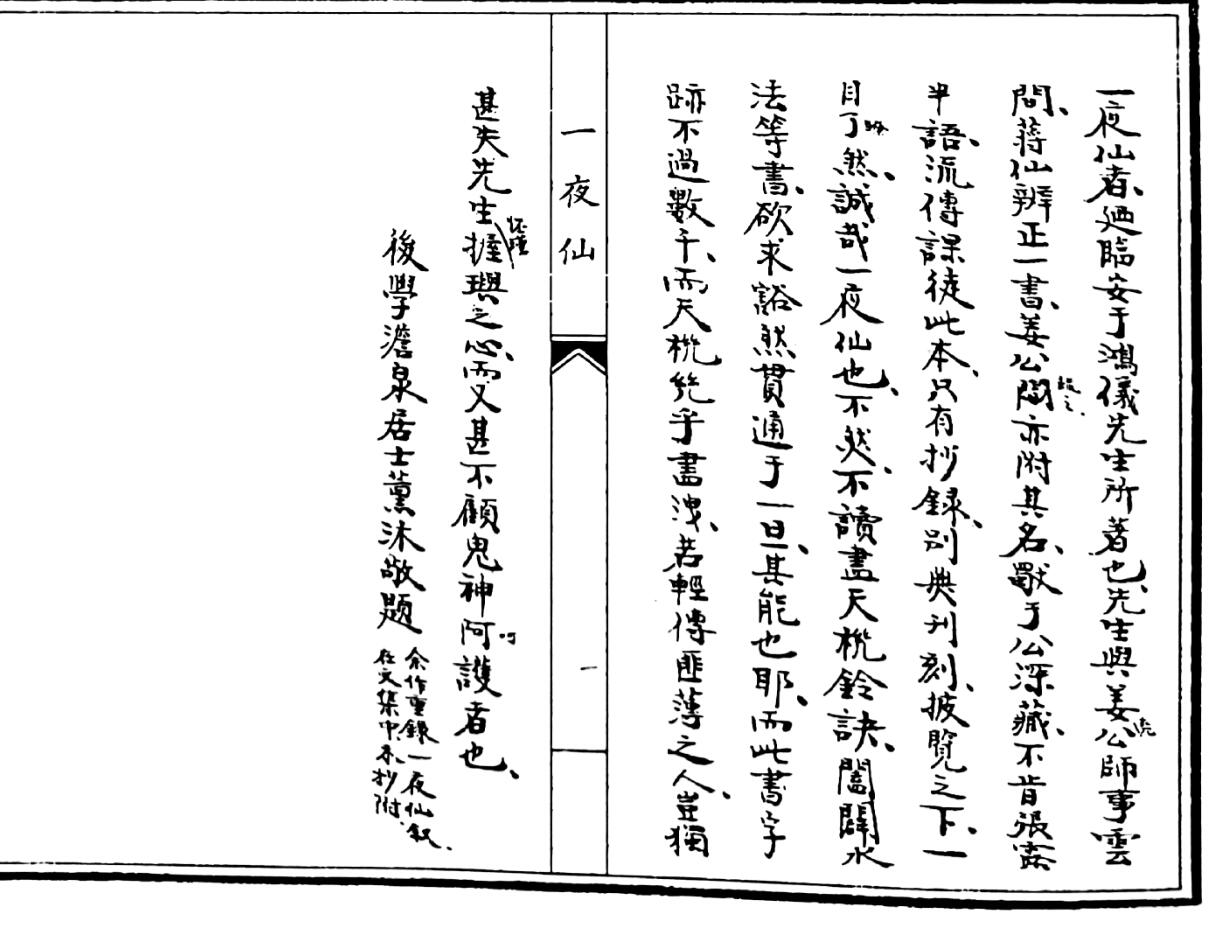 一夜仙者、廼臨安于鴻儀先生所著也、先生與姜公師事雲
問、蔣仙辨正一書、姜公問亦附其名、獸于公深藏、不肯張露
半語、流傳課徒此本、只有抄錄、別無刊刻、披覽之下、一
目了然、誠哉一夜仙也、不然、不讀盡天機鈐訣、闔闢水
法等書、欲求豁然貫通于一旦、其能也耶、而此書字
跡不過數千、而天機純乎盡洩、若輕傳匪薄之人、豈獨
一夜仙
一
甚失先生握璵之心、而又甚不顧鬼神阿護者也、
呵
後學澹泉居士薰沐敬題
余作重錄一夜仙叙、
在文集中、未抄附、